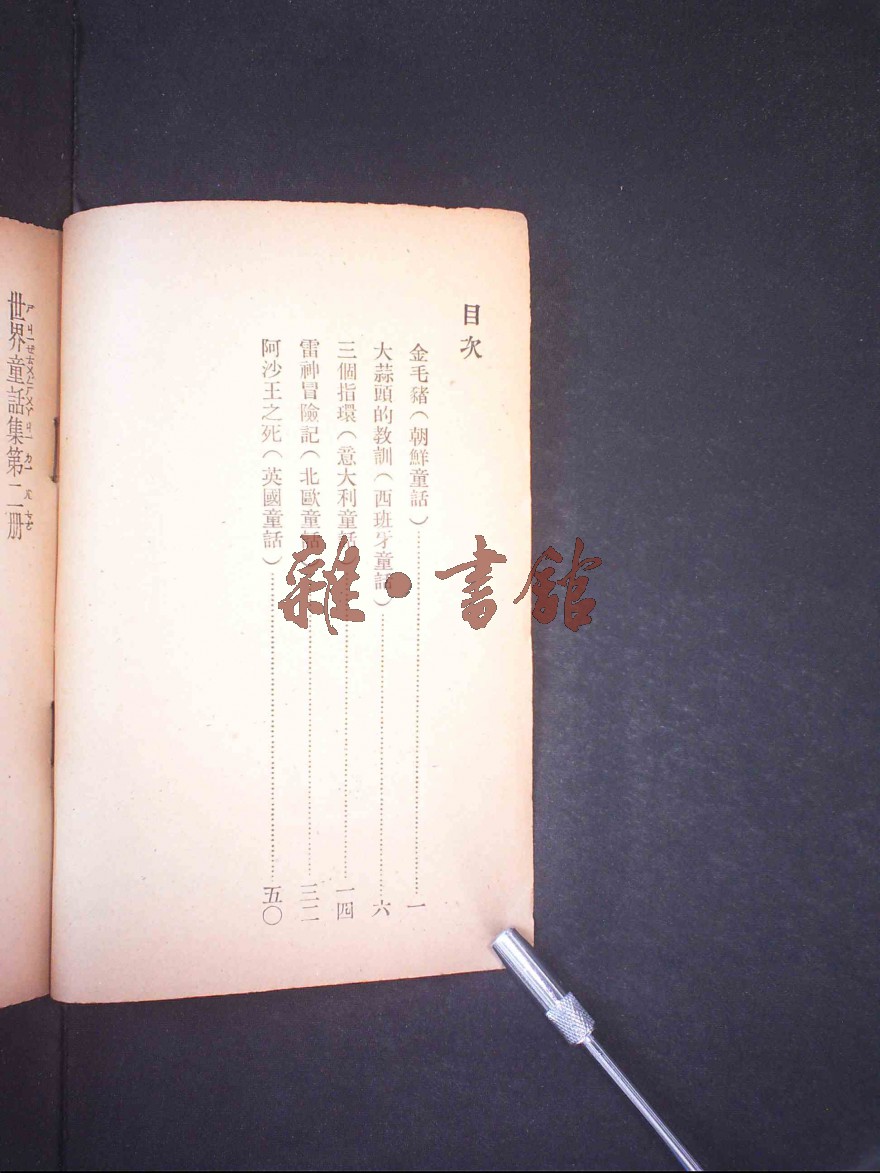 目次
金毛豬（朝鮮童話）……一
大蒜頭的教訓（西班牙童話）……六
三個指環（意大利童話）……一四
雷神冒險記（北歐童話）……三二
阿沙王之死（英國童話）……五〇
世界童話集第二册
雜·書館